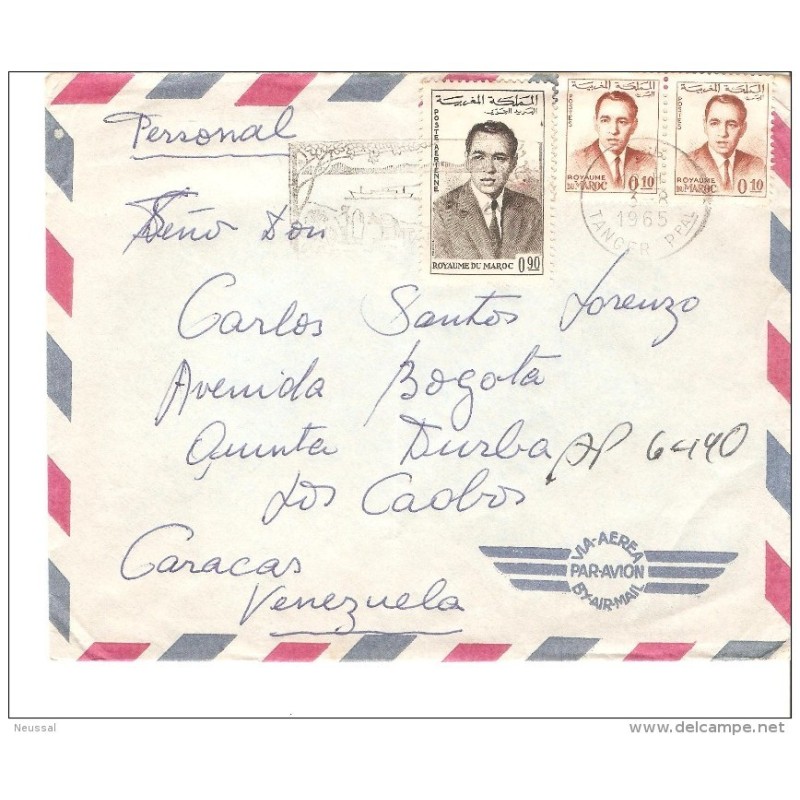 Personal
المملكة المغربية
البريد الجوي
POSTE AERIENNE
ROYAUME DU MAROC 0.90
المملكة المغربية
البريد
POSTES
ROYAUME
DU MAROC 0.10
المملكة المغربية
البريد
POSTES
ROYAUME
DU MAROC 0.10
1965
TANGER PPAL
Señor Don
Carlos Santos Lorenzo
Avenida Bogotá
Quinta Durba AP 6440
Los Caobos
Caracas
Venezuela
VIA-AEREA
PAR-AVION
BY-AIR-MAIL
Neussal
delcampe.net